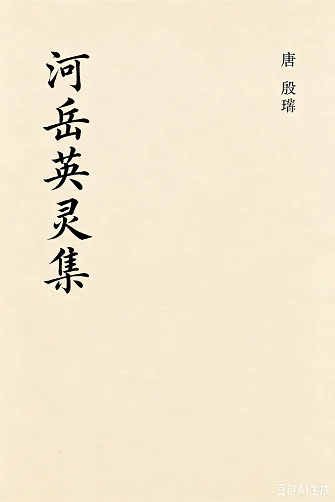 唐 殷璠
河岳英灵集
豆包AI生成